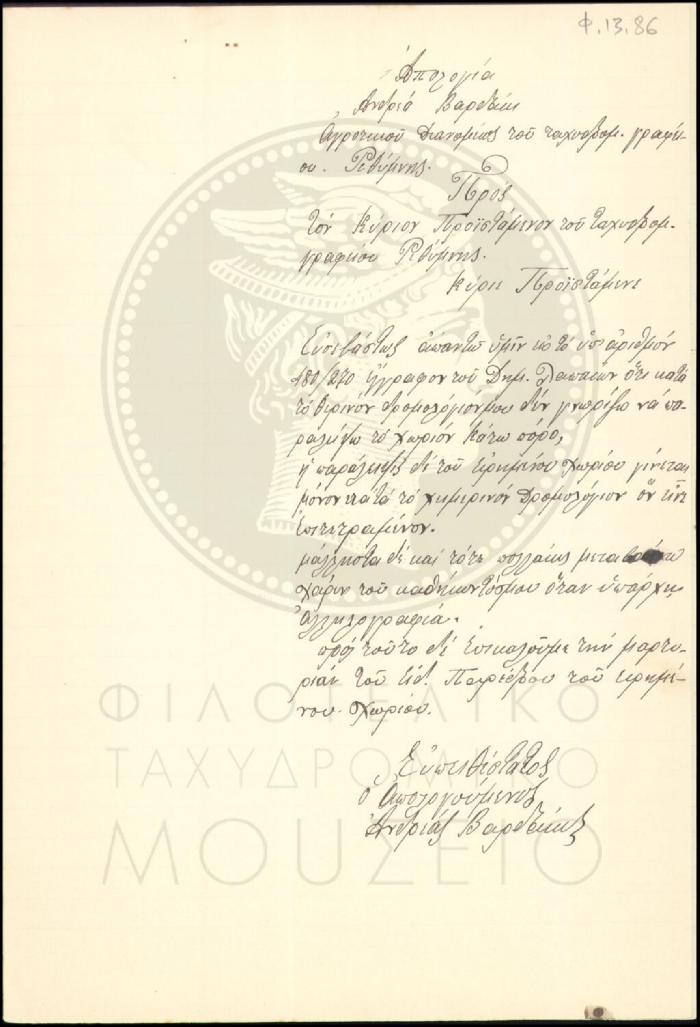 Φ.13.86
Ἀπολογία
Ἀνδρέα Βαρδάκι
Ἀγροτικοῦ Διανομέως τοῦ ταχυδρομ. γραφεί-
ου. Ρεθύμνης.
Πρός
τόν Κύριον Προϊστάμενον τοῦ ταχυδρομ-
γραφείου Ρεθύμνης.
Κύριε Προϊστάμενε
Εὐσεβάστως ἀπαντῶ ὑμῖν εἰς τό ὑπ ἀριθμόν
480/270 ἔγγραφον τοῦ Δημ. Λαππαίων ὅτι κατά
τό θερινόν δρομολόγιον μου δέν γνωρίζω νά πα-
ραλείψω τό χωρίον κάτω πόρο,
ἡ παράλειψις δέ τοῦ εἰρημένου χωρίου γίνεται
μόνον κατά τό χημερινόν δρομολόγιον ὅν εἶνε
ἐπιτετραμένον.
μάλλιστα δέ καί τότε πολλάκις μεταβαίνω
χάριν τοῦ καθήκοντός μου ὅταν ὑπάρχει
ἀλληλογραφία.
πρός τοῦτο δέ ἐπικαλοῦμε τήν μαρτυ-
ρίαν τοῦ Εἰδ. Παρέδρου τοῦ εἰρημέ-
νου χωρίου.
Εὐπειθέστατος
ὁ Ἀπολογούμενος
Ἀνδρέας Βαρδάκις
ΦΙΛΟΤΕΛΙΚΟ
ΤΑΧΥΔΡΟΜΙΚΟ
ΜΟΥΣΕΙΟ